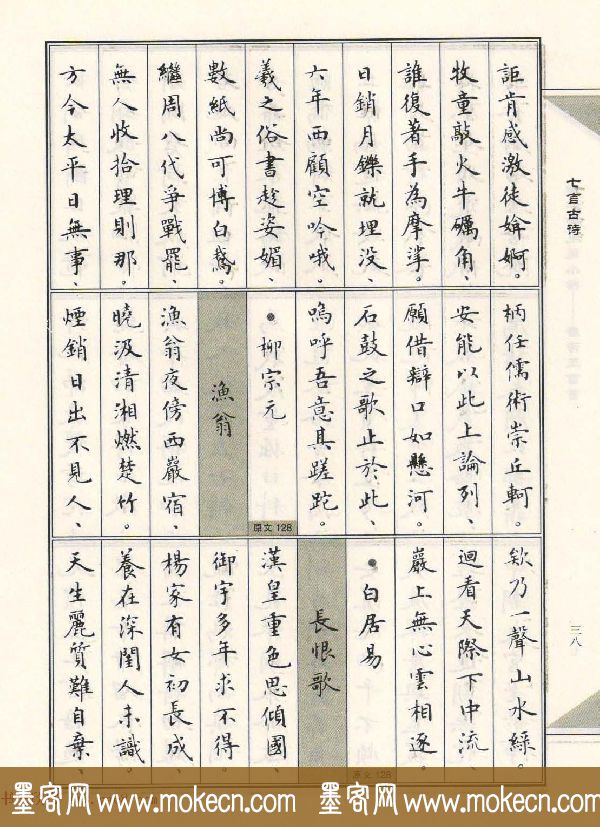 七言古詩
詎肯感激徒媕婀。
牧童敲火牛礪角、
誰復著手為摩挲。
日銷月鑠就埋没、
六年西顧空吟哦。
羲之俗書趁姿媚、
數紙尚可博白鵝。
繼周八代爭戰罷、
無人收拾理則那。
方今太平日無事、
柄任儒術崇丘軻。
安能以此上論列、
願借辯口如懸河。
石鼓之歌止於此、
嗚呼吾意其蹉跎。
●柳宗元
原文 128
漁翁
漁翁夜傍西巖宿、
曉汲清湘燃楚竹。
煙銷日出不見人、
欸乃一聲山水綠。
迴看天際下中流、
巖上無心雲相逐。
●白居易
原文 128
長恨歌
漢皇重色思傾國、
御宇多年求不得。
楊家有女初長成、
養在深閨人未識。
天生麗質難自棄、
三八
墨客网 www.mokecn.com 墨客网 www.mokecn.com